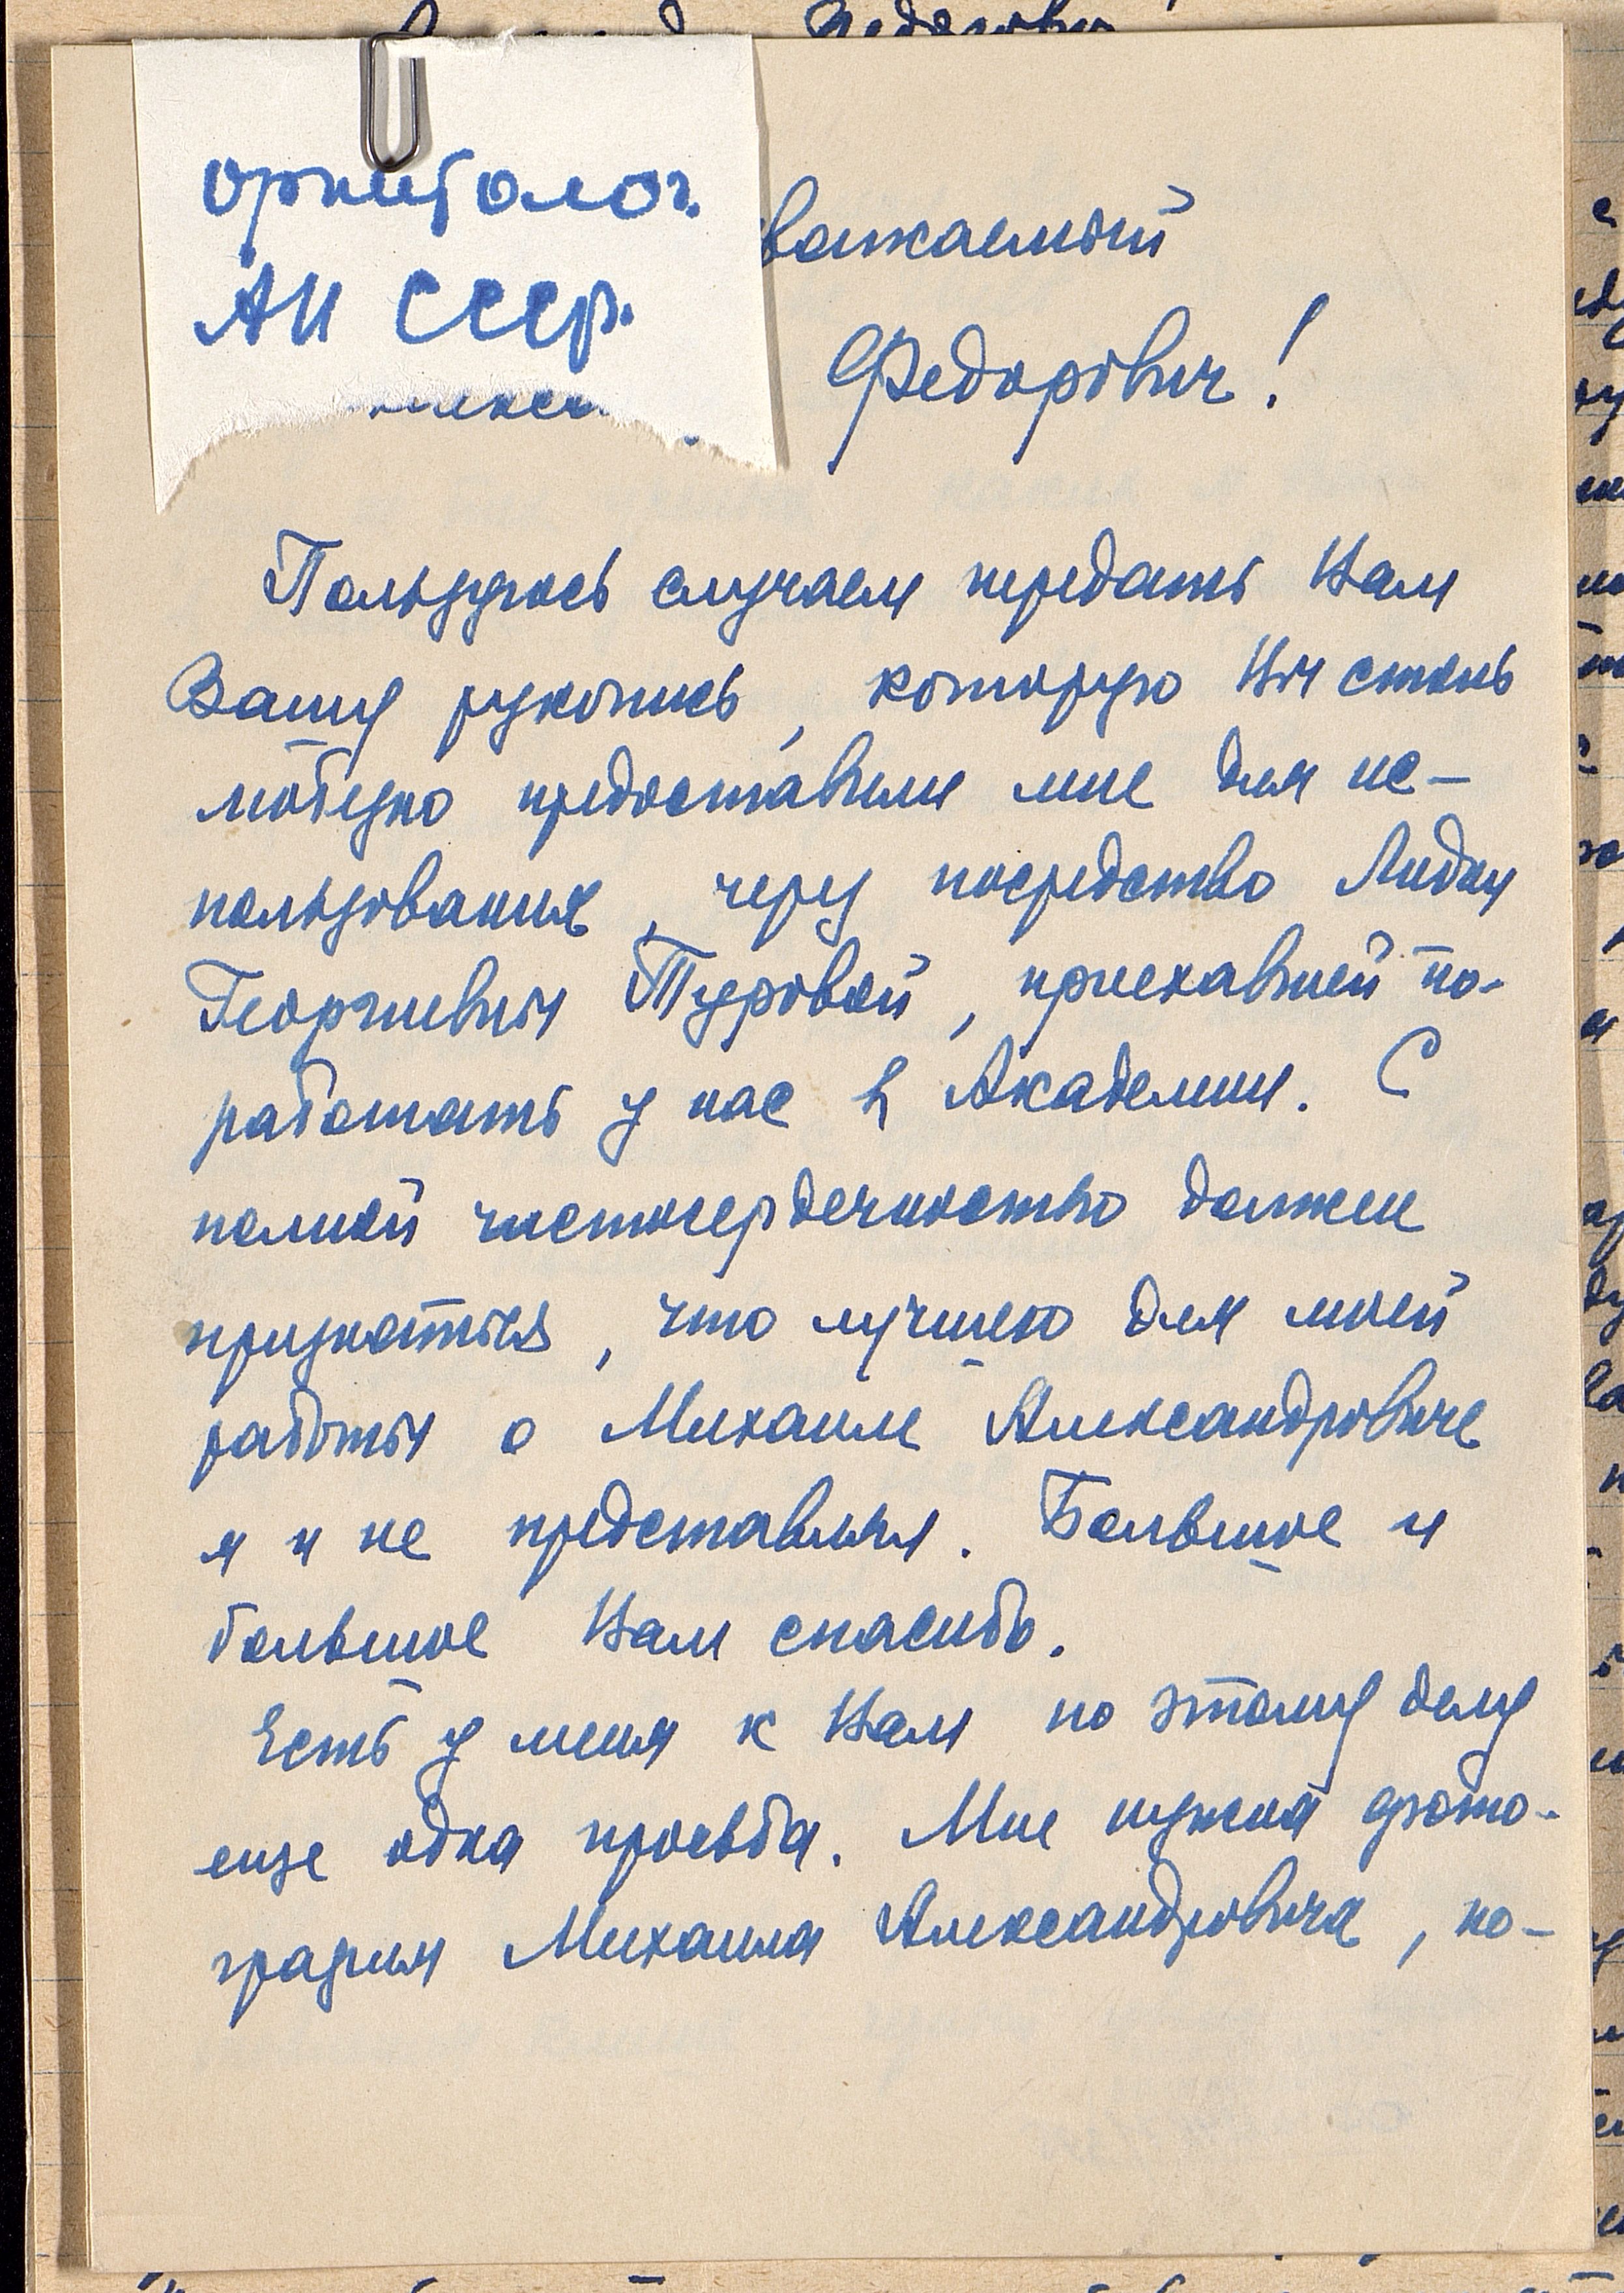 орнитолог.
АН СССР.
важаемый
Федорович!
Пользуюсь случаем передать Вам
Вашу рукопись, которую Вы столь
любезно предоставили мне для ис-
пользования, через посредство Лидии
Георгиевны Туровой, приехавшей по-
работать у нас в Академии. С
полной чистосердечностью должен
признаться, что лучшего для моей
работы о Михаиле Александровиче
я и не представлял. Большое и
большое Вам спасибо.
Есть у меня к Вам по этому делу
еще одна просьба. Мне нужна фото-
графия Михаила Александровича, по-